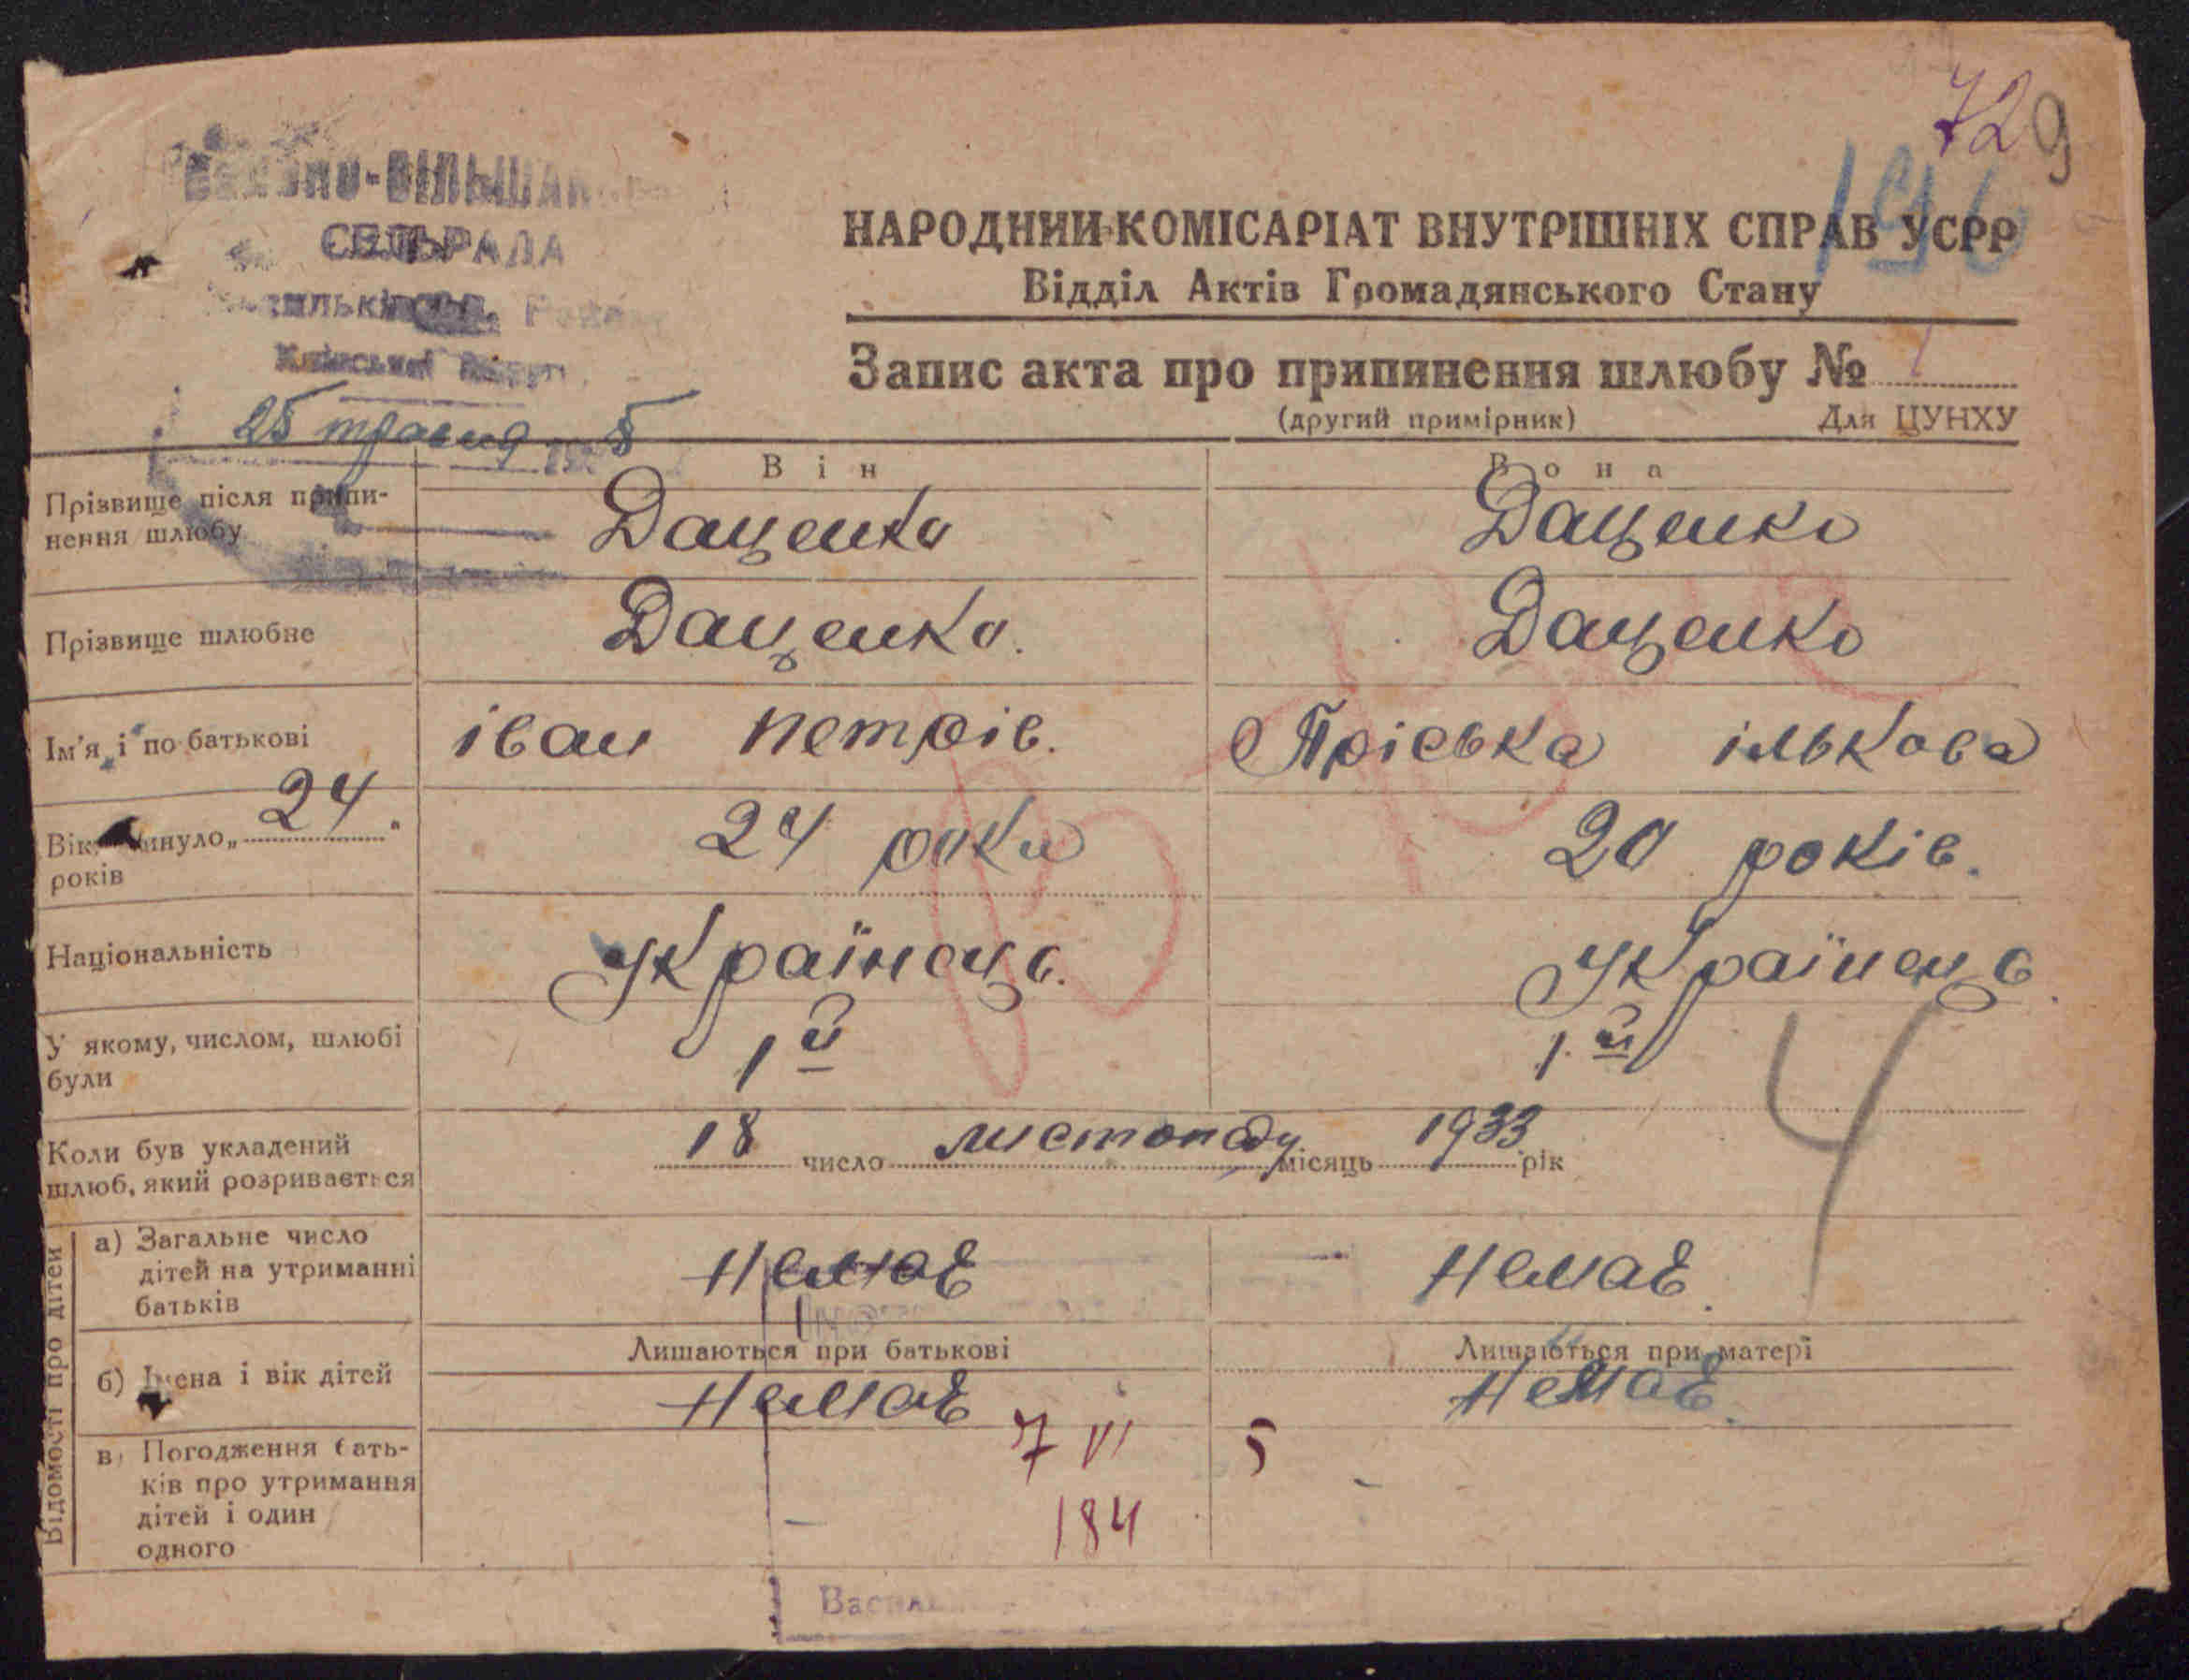 729
196
СЕЛЬРАДА
25 травня 5
НАРОДНИЙ КОМІСАРІАТ ВНУТРІШНІХ СПРАВ УСРР
Відділ Актів Громадянського Стану
Запис акта про припинення шлюбу № 1
(другий примірник) Для ЦУНХУ
Він Вона
Прізвище після припи-
нення шлюбу
Даценко Даценко
Прізвище шлюбне Даценко. Даценко
Ім'я і по батькові іван петрів. Пріська ількова
Вік, минуло „24"
років
24 роки 20 років.
Національність Українець. Українець.
У якому, числом, шлюбі
були
1й 1.й
Коли був укладений
шлюб, який розривається
18 число листопаду місяць 1933 рік
Відомості про дітей
а) Загальне число
дітей на утриманні
батьків
Немає Немає.
Лишаються при батькові Лишаються при матері
б) Імена і вік дітей Немає Немає.
7 VI 5
в) Погодження бать-
ків про утримання
дітей і один
одного
184
4